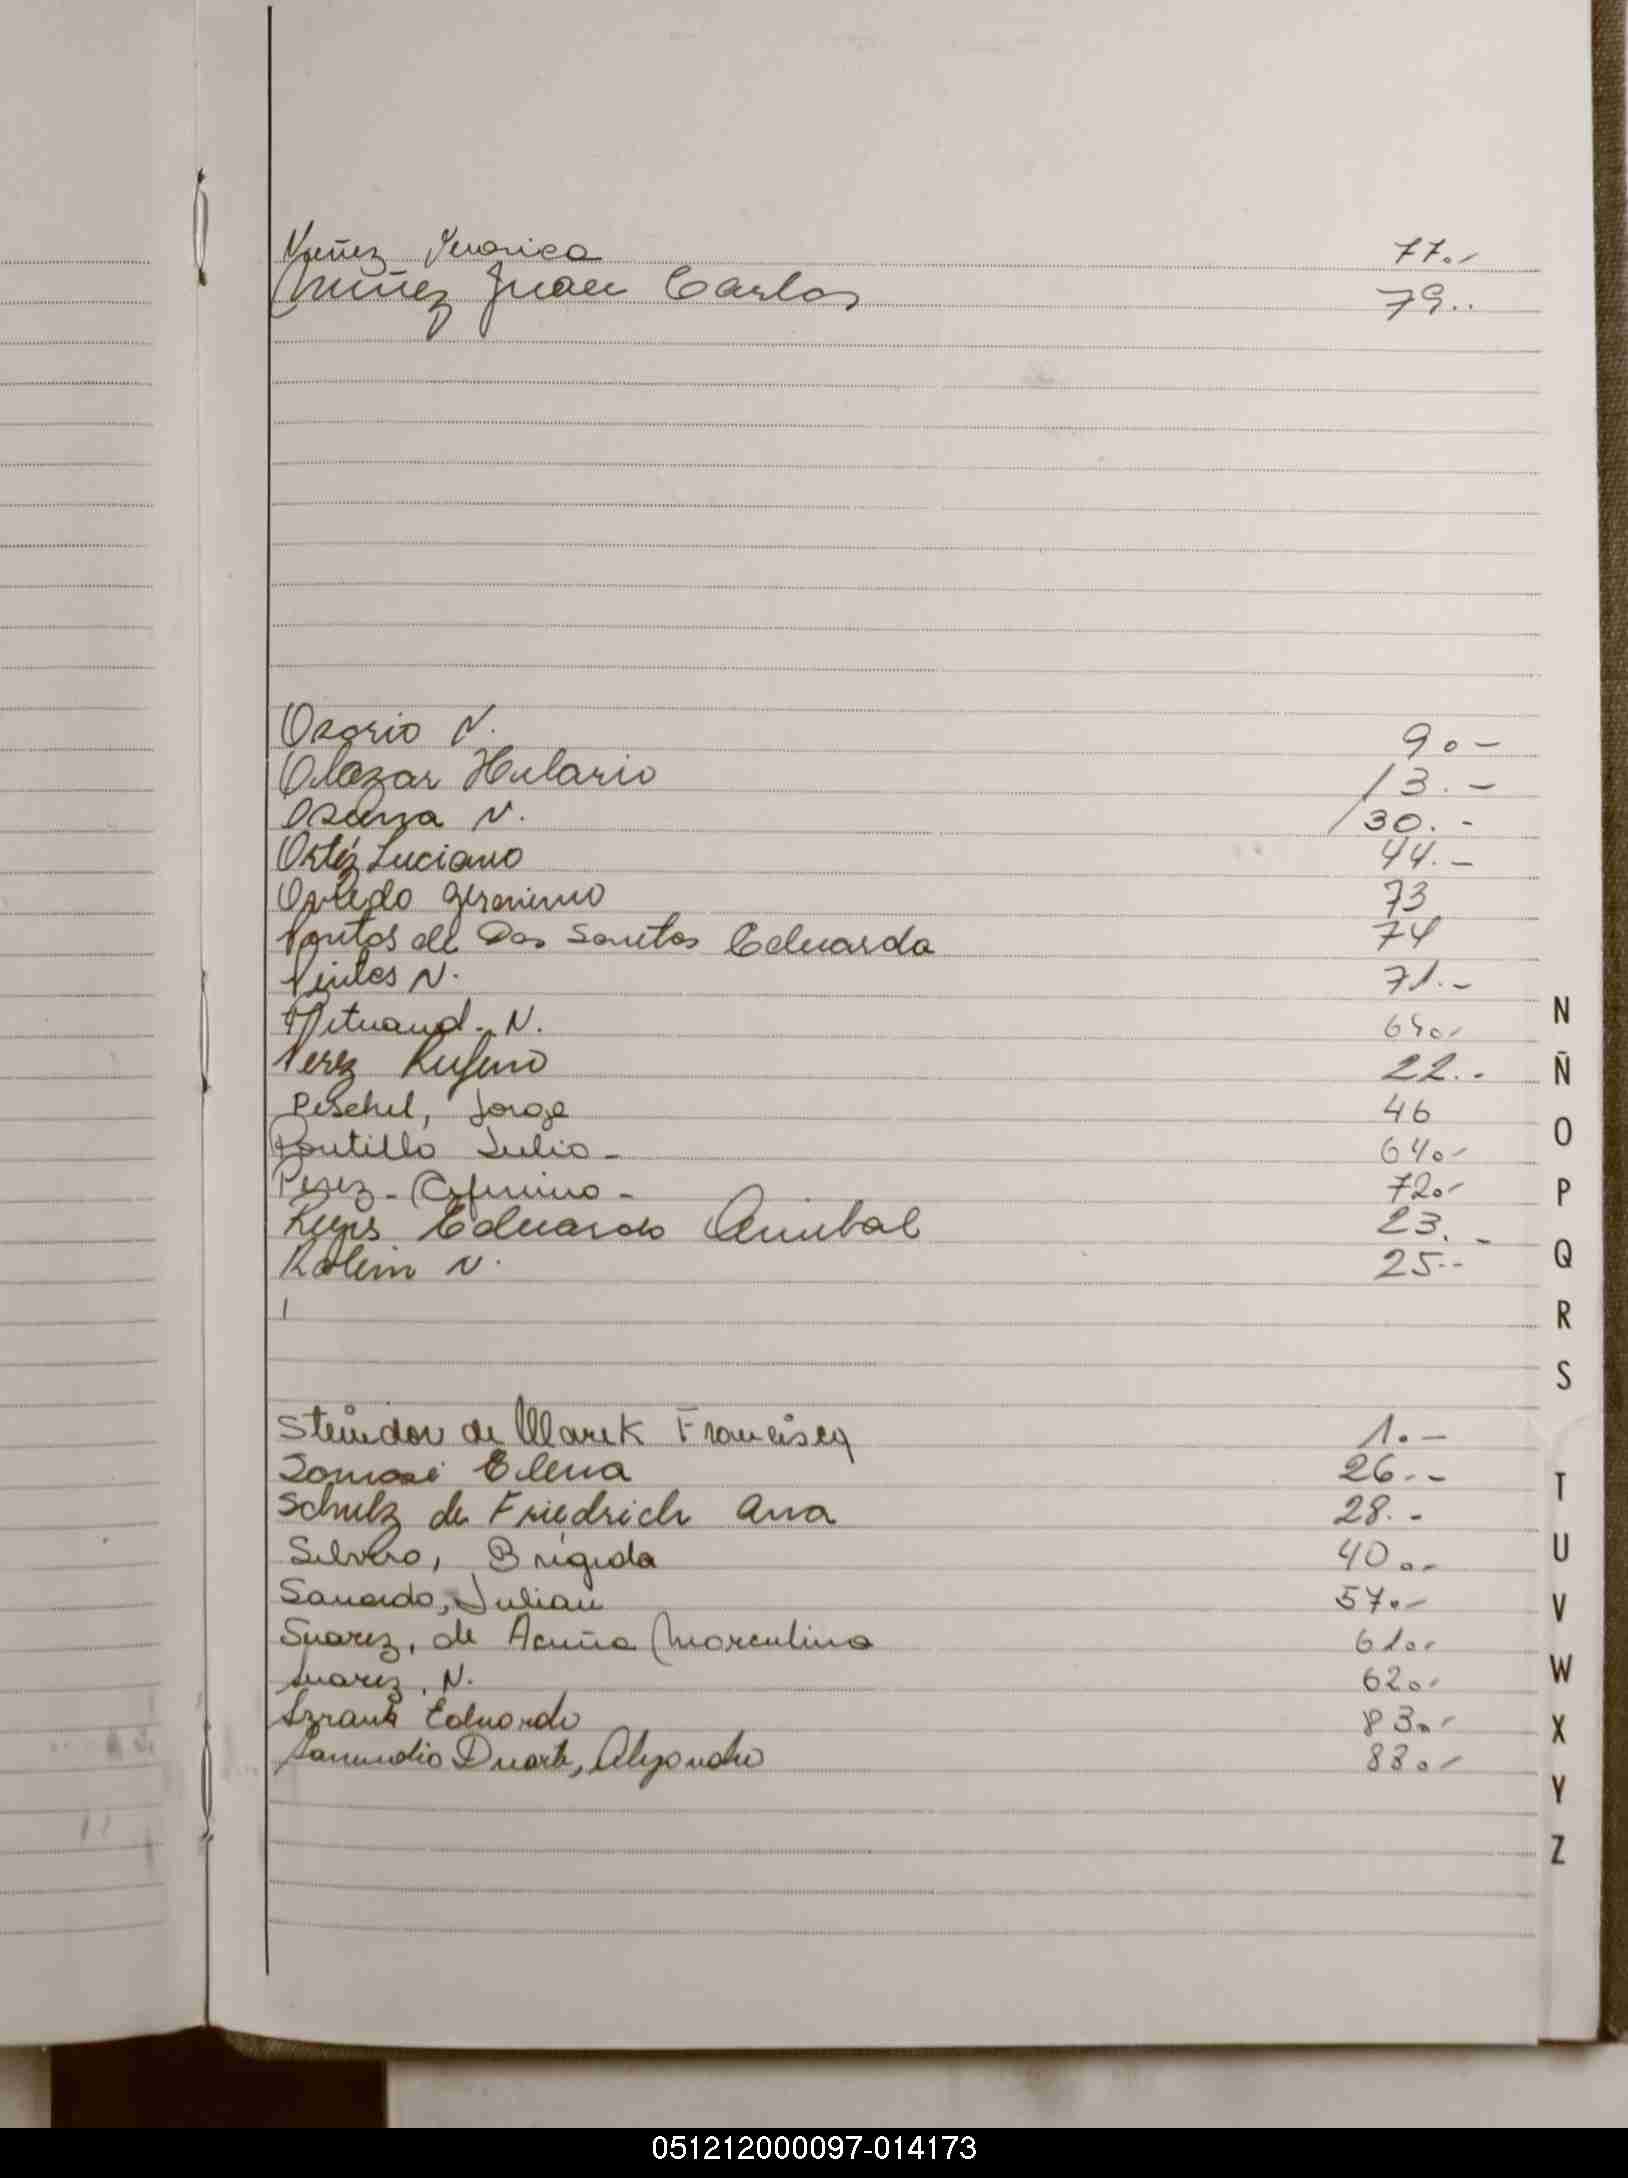 Nuñez 77.-
Nuñez Juan Carlos 79..
Osorio N. 9.-
Olazar Hilario 13.-
N. 30.-
Ortíz Luciano 44.-
Oviedo Geronimo 73
de Dos Santos Eduarda 74
N. 71.-
N.
Perez Rufino 22..
Peschel, Jorge 46
Portillo Julio - 64.-
Perez - Ceferino - 72.-
Reyes Eduardo Anibal 23.-
N. 25.-
Steindor de Marek Francisca 1.-
Elena 26.-
Schulz de Friedrich Ana 28.-
Silvero, Brigida 40.-
Julian 57.-
Suarez, de Acuña Marculina 61.-
Suarez, N. 62.-
Eduardo 83.-
Samudio Duarte, Alejandro 88.-
N
Ñ
O
P
Q
R
S
T
U
V
W
X
Y
Z
051212000097-014173